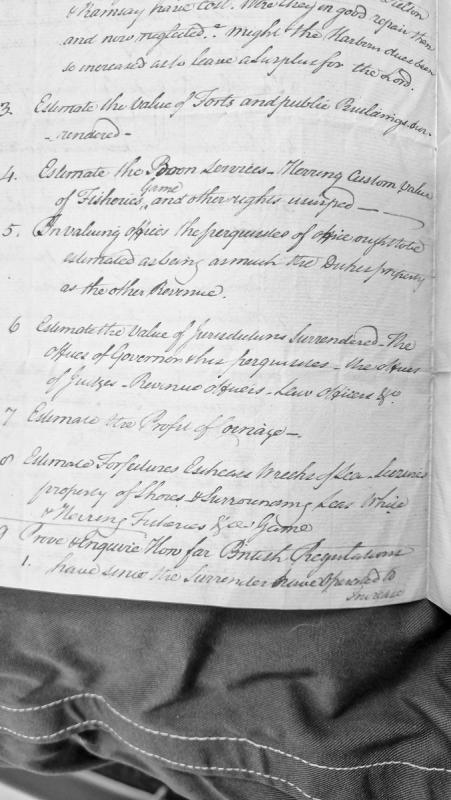 & Ramsay have cost. Were they in good repair then
and now neglected? might & the Harbour dues been
so increased as to leave a surplus for the Lord.
3. Estimate the Value of Forts and public Buildings Sur-
-rendered-
4. Estimate the Boon Services - Herring Custom Value
of Fisheries, Game and other rights usurped —
5. In valuing offices the perquisites of office ought to be
estimated as being as much the Dukes property
as the other Revenue.
6 Estimate the Value of Jurisdictions Surrendered - The
offices of Governor & his perquisites - the offices
of Judges - Revenue officers - Law Officers &c.
7 Estimate the Profit of Coinage -.
8 Estimate Forfeitures Escheats Wrecks of Sea
property of Shores & Surrounding Seas White
& Herring Fisheries &ca Game
9 Prove & Enquire How far British Regulations
1. have since the Surrender have operated to
Increase